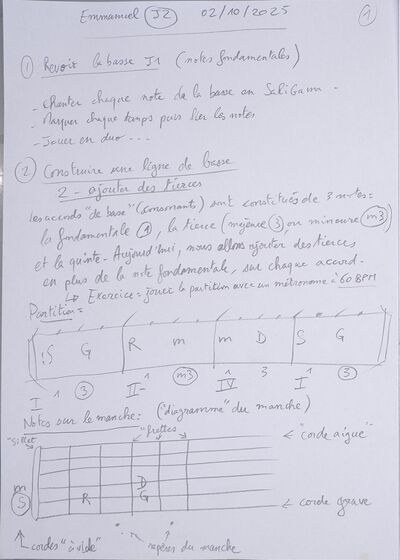 Emmanuel J2 02/10/2025 1
1 Revoir la basse J1 (notes fondamentales)
- Chanter chaque note de la basse en SaRiGaMa -
- Marquer chaque temps puis lier les notes
- Jouer en duo ...
2 Construire une ligne de basse
2 - ajouter des tierces
Les accords "de base" (consonant) sont constitués de 3 notes =
la fondamentale 1, la tierce (majeure 3 ou mineure m3)
et la quinte - Aujourd'hui, nous allons ajouter des tierces
en plus de la note fondamentale, sur chaque accord -
↳ Exercice = jouer la partition avec un métronome à 60 BPM
Partition =
S G R m m D S G
I 1 3 II- 1 m3 IV 1 3 I 1 3
Notes sur le manche = ("diagramme" du manche)
"sillet" "frettes" "corde aigue"
m D
S R G corde grave
cordes "à vide" repères du manche